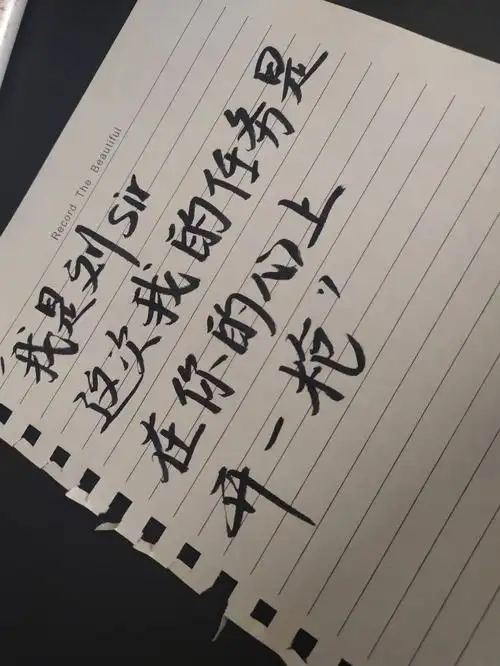 Record The Beautiful
“我是刘Sir
这次我的任务是
在你的心上
开一枪”